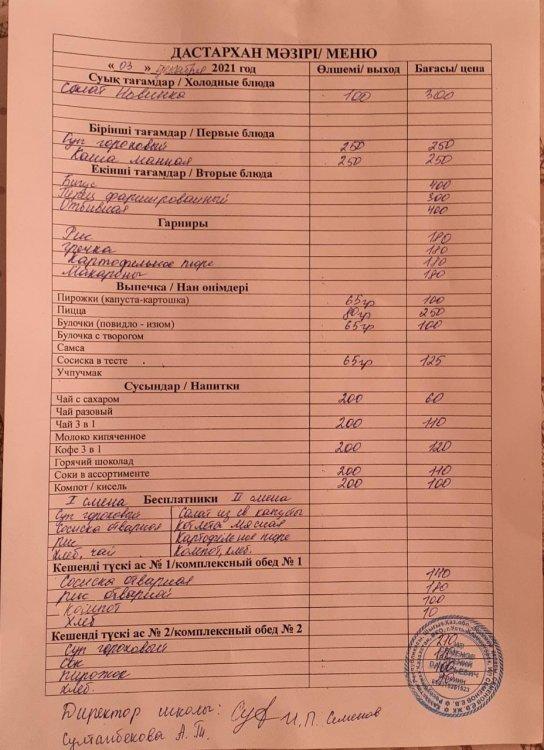 ДАСТАРХАН МӘЗІРІ/ МЕНЮ
« 03 » декабря 2021 год Өлшемі/ выход Бағасы/ цена
Суық тағамдар / Холодные блюда
Салат Новинка 100 300
Бірінші тағамдар / Первые блюда
Суп гороховый 250 250
Каша манная 250 250
Екінші тағамдар / Вторые блюда
Бигус 400
Перец фаршированный 300
Отбивная 400
Гарниры
Рис 180
Гречка 180
Картофельное пюре 180
Макароны 180
Выпечка / Нан өнімдері
Пирожки (капуста-картошка) 65гр 100
Пицца 80гр 250
Булочки (повидло - изюм) 65гр 100
Булочка с творогом
Самса
Сосиска в тесте 65гр 125
Учпучмак
Сусындар / Напитки
Чай с сахаром 200 60
Чай разовый
Чай 3 в 1 200 110
Молоко кипяченное
Кофе 3 в 1 200 120
Горячий шоколад
Соки в ассортименте 200 110
Компот / кисель 200 100
I смена Бесплатники II смена
Суп гороховый Салат из св капусты
Сосиска отварная Котлета мясная
Рис Картофельное пюре
Хлеб, чай Компот, хлеб.
Кешенді түскі ас № 1/комплексный обед № 1
Сосиска отварная 140
Рис отварной 180
Компот 100
Хлеб 10
Кешенді түскі ас № 2/комплексный обед № 2
Суп гороховый 210
Сок
Пирожок 100
Хлеб.
Директор школы: И.П. Семенов
Султанбекова А.Т.